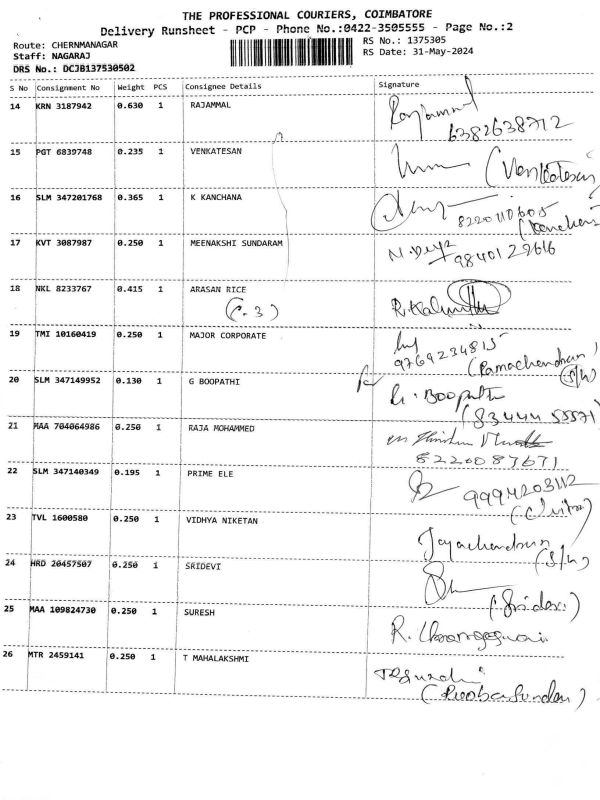 THE PROFESSIONAL COURIERS, COIMBATORE
Delivery Runsheet - PCP - Phone No.:0422-3505555 - Page No.:2
Route: CHERNMANAGAR
RS No.: 1375305
Staff: NAGARAJ
RS Date: 31-May-2024
DRS No.: DCJB137530502
S No Consignment No Weight PCS Consignee Details Signature
14 KRN 3187942 0.630 1 RAJAMMAL Rajammal
6382638712
15 PGT 6839748 0.235 1 VENKATESAN (Venkatesan)
16 SLM 347201768 0.365 1 K KANCHANA
8220110605
(Kanchana)
17 KVT 3087987 0.250 1 MEENAKSHI SUNDARAM
9840129616
18 NKL 8233767 0.415 1 ARASAN RICE
(C. 3)
19 TMI 10160419 0.250 1 MAJOR CORPORATE
9769234815
(Ramachandran)
(S/W)
20 SLM 347149952 0.130 1 G BOOPATHI G. Boopathi
(83444 55571)
21 MAA 704064986 0.250 1 RAJA MOHAMMED
8220087671
22 SLM 347140349 0.195 1 PRIME ELE
9994203112
(Chitra)
23 TVL 1600580 0.250 1 VIDHYA NIKETAN Jayachandran
(S/W)
24 HRD 20457507 0.250 1 SRIDEVI
(Sridevi)
25 MAA 109824730 0.250 1 SURESH
26 MTR 2459141 0.250 1 T MAHALAKSHMI